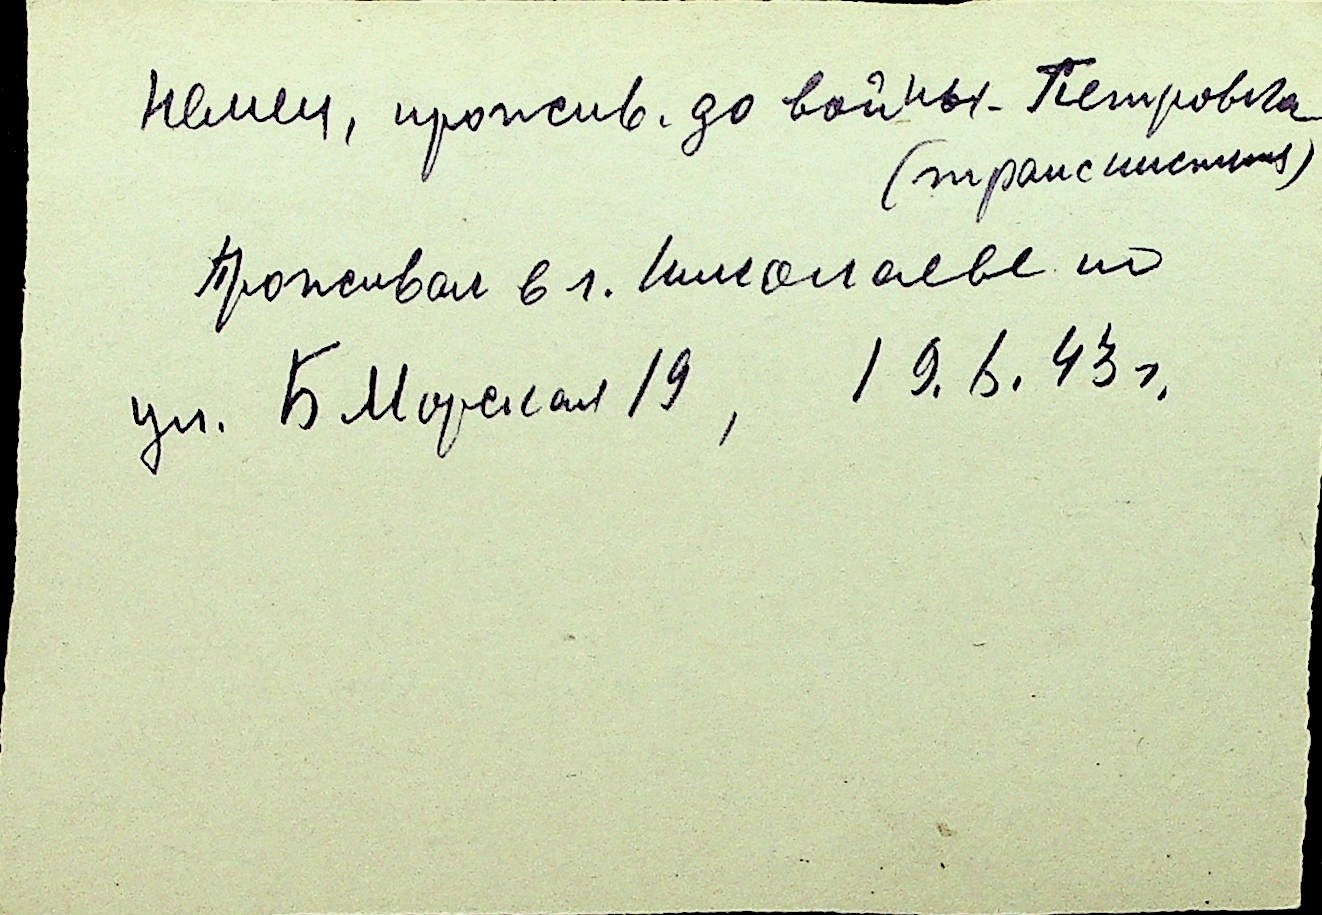 Немец, прожив. до войны - Петровка
(Транснистрия)
Проживал в г. Николаеве по
ул. Б Морская 19, 19.6.43 г.